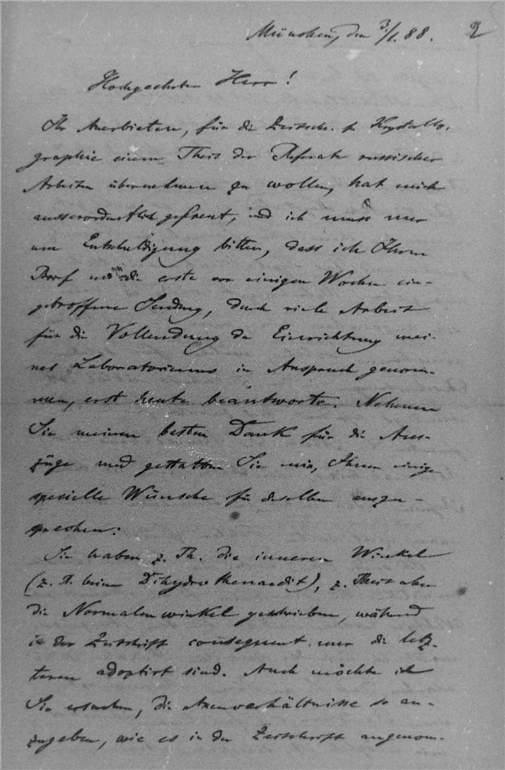 München, den 3/1. 88. 2
Hochgeehrter Herr!
Ihr Anerbieten, für die Zeitschr. f. Krystallo-
graphie einen Theil der Referate russischer
Arbeiten übernehmen zu wollen, hat mich
ausserordentlich gefreut, und ich muss nur
um Entschuldigung bitten, dass ich Ihren
Brief und die erste vor einigen Wochen ein-
getroffene Sendung, durch viele Arbeit
für die Vollendung der Einrichtung mei-
nes Laboratoriums in Anspruch genom-
men, erst heute beantworte. Nehmen
Sie meinen besten Dank für die Aus-
züge und gestatten Sie mir, Ihnen einige
specielle Wünsche für dieselben auszu-
sprechen:
Sie haben z. Th. die inneren Winkel
(z. B. beim Dihydrothenardit), z. Theil aber
die Normalenwinkel geschrieben, während
in der Zeitschrift consequent nur die letz-
teren adoptirt sind. Auch möchte ich
Sie ersuchen, die Axenverhältnisse so an-
zugeben, wie es in der Zeitschrift angenom-